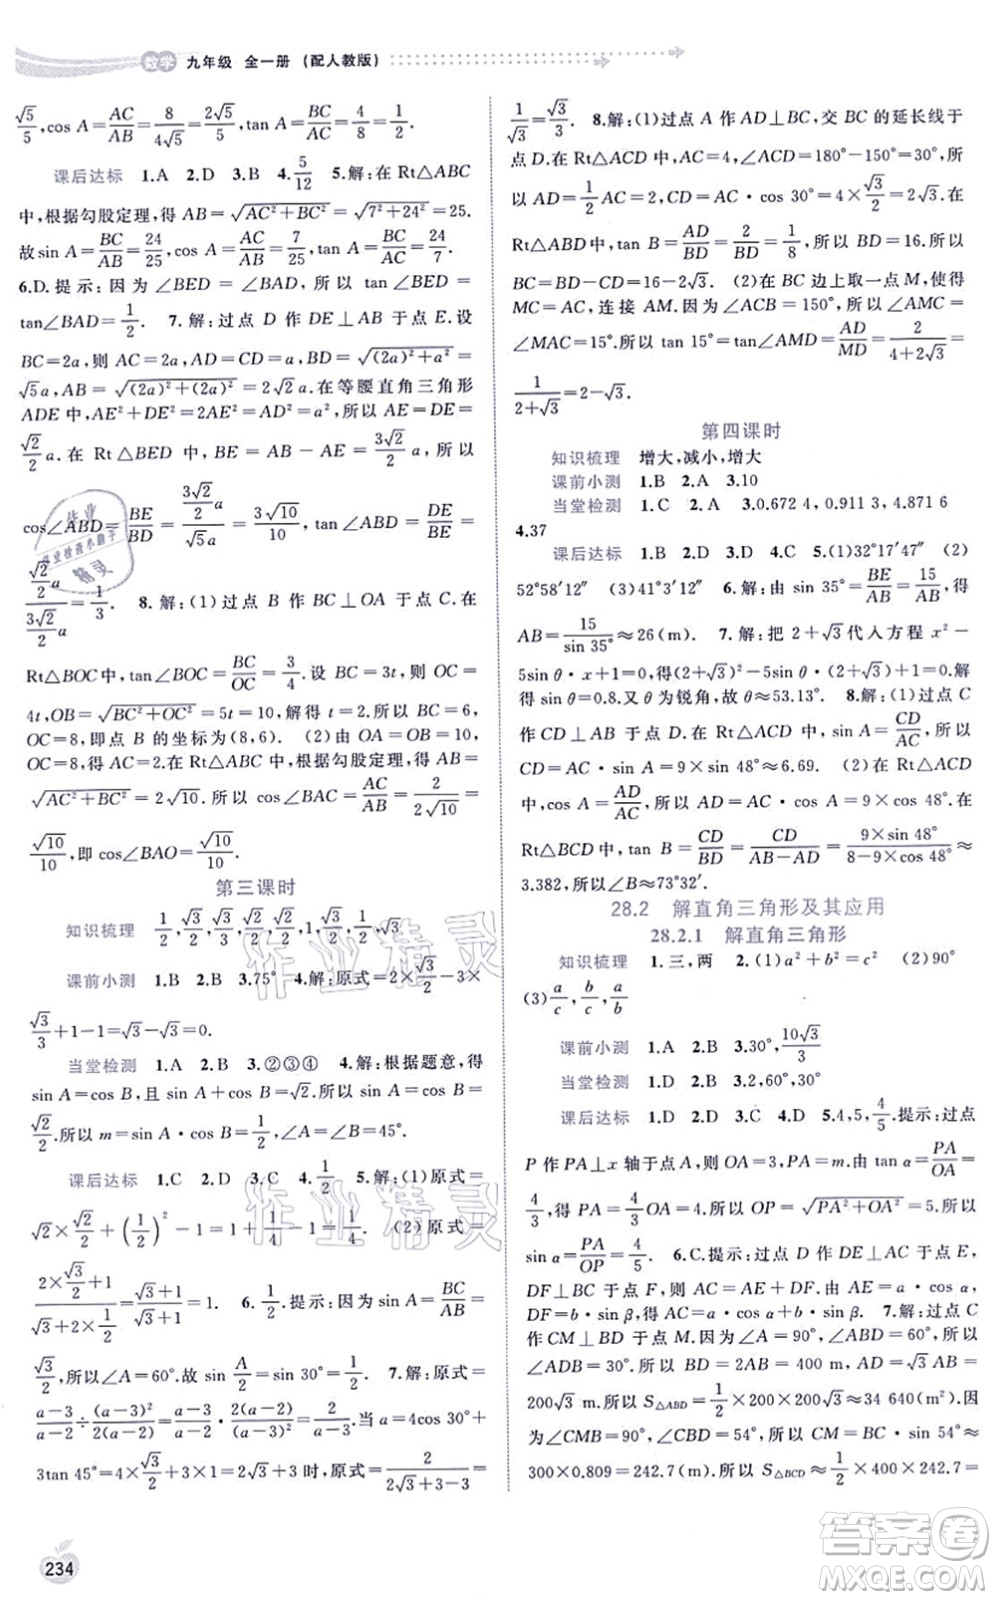 数学 九年级 全一册 (配人教版)
√5/5,cos A=AC/AB=8/(4√5)=2√5/5,tan A=BC/AC=4/8=1/2.
课后达标 1.A 2.D 3.B 4.5/12 5.解:在 Rt△ABC
中,根据勾股定理,得 AB=√(AC²+BC²)=√(7²+24²)=25.
故sin A=BC/AB=24/25,cos A=AC/AB=7/25,tan A=BC/AC=24/7.
6.D.提示:因为∠BED=∠BAD,所以 tan∠BED=
tan∠BAD=1/2. 7.解:过点 D 作 DE⊥AB 于点 E.设
BC=2a,则 AC=2a,AD=CD=a,BD=√((2a)²+a²)=
√5a,AB=√((2a)²+(2a)²)=2√2a.在等腰直角三角形
ADE 中,AE²+DE²=2AE²=AD²=a²,所以 AE=DE=
√2/2a.在 Rt△BED 中,BE=AB-AE=3√2/2a,所以
cos∠ABD=BE/BD=(3√2/2a)/(√5a)=3√10/10,tan∠ABD=DE/BE=
(√2/2a)/(3√2/2a)=1/3. 8.解:(1)过点 B 作 BC⊥OA 于点 C.在
Rt△BOC中,tan∠BOC=BC/OC=3/4.设 BC=3t,则OC=
4t,OB=√(BC²+OC²)=5t=10,解得t=2.所以 BC=6,
OC=8,即点 B 的坐标为(8,6). (2)因为 OA=OB=10,
OC=8,所以AC=2.在Rt△ABC中,根据勾股定理,得AB=
√(AC²+BC²)=2√10.所以 cos∠BAC=AC/AB=2/(2√10)=
√10/10,即 cos∠BAO=√10/10.
第三课时
知识梳理 1/2,√3/2,√3/3,√2/2,√2/2,1,√3/2,1/2,√3
课前小测 1.B 2.B 3.75° 4.解:原式=2×√3/2-3×
√3/3+1-1=√3-√3=0.
当堂检测 1.A 2.B 3.②③④ 4.解:根据题意,得
sin A=cos B,且 sin A+cos B=√2.所以 sin A=cos B=
√2/2.所以 m=sin A·cos B=1/2,∠A=45°.
课后达标 1.C 2.D 3.C 4.1/2 5.解:(1)原式=
√2×√2/2+(1/2)²-1=1+1/4-1=1/4. (2)原式=
(2×√3/2+1)/(√3+2×1/2)=(√3+1)/(√3+1)=1. 6.1/2.提示:因为sin A=BC/AB=
√3/2,所以∠A=60°,所以 sin A/2=sin 30°=1/2. 7.解:原式=
(a-3)/(a-2)÷(a-3)²/(2(a-2))=(a-3)/(a-2)·2(a-2)/(a-3)²=2/(a-3).当 a=4cos 30°+
3tan 45°=4×√3/2+3×1=2√3+3时,原式=2/(2√3+3-3)=
1/√3=√3/3. 8.解:(1)过点 A 作 AD⊥BC,交 BC 的延长线于
点 D.在 Rt△ACD 中,因为∠ACD=180°-150°=30°,所
以AD=1/2AC=2,CD=AC·cos 30°=4×√3/2=2√3.在
Rt△ABD 中,tan B=AD/BD=2/BD=1/8,所以 BD=16.所以
BC=BD-CD=16-2√3. (2)在BC边上取一点M,使得
MC=AC,连接 AM.因为∠ACB=150°,所以∠AMC=
∠MAC=15°.所以 tan 15°=tan∠AMC=AD/MD=2/(4+2√3)=
1/(2+√3)=2-√3.
第四课时
知识梳理 增大,减小,增大
课前小测 1.B 2.A 3.10
当堂检测 1.C 2.A 3.0.672 4,0.911 3,4.871 6
4.37
课后达标 1.B 2.D 3.D 4.C 5.(1)32°17′47″ (2)
52°58′12″ (3)41°23′59″ 6.解:由 sin 35°=BE/AB=15/AB,得
AB=15/sin 35°≈26(m). 7.解:把 2+√3代入方程 x²-
5sin θ·x+1=0,得(2+√3)²-5sin θ·(2+√3)+1=0.解
得sin θ=0.8.又θ为锐角,故θ≈53.13°. 8.解:(1)过点C
作 CD⊥AB,垂足为 D.在 Rt△ACD 中,sin A=CD/AC,所以
CD=AC·sin A=9×sin 48°≈6.69. (2)在 Rt△ACD
中,cos A=AD/AC,所以AD=AC·cos A=9×cos 48°.在
Rt△BCD 中,tan B=CD/BD=CD/(AB-AD)=(9×sin 48°)/(8-9×cos 48°)≈
3.382,所以∠B≈73°32′.
28.2 解直角三角形及其应用
28.2.1 解直角三角形
知识梳理 1.三,两 2.(1)a²+b²=c² (2)90°
(3)a/c,b/c,a/b
课前小测 1.A 2.B 3.30°,10√3/3
当堂检测 1.D 2.B 3.2,60°,30°
课后达标 1.D 2.B 3.C 4.D 5.4,5,4/5.提示:过点
P 作PA⊥x 轴于点 A,则 OA=3,PA=n.由 tan α=PA/OA=
4/3,得 PA=4,即n=4.所以 OP=√(PA²+OA²)=5.所以
sin α=PA/OP=4/5. 6.C.提示:过点 D 作 DE⊥AC于点 E,
DF⊥BC 于点 F,则 AC=AE+DF.因为 AE=a·cos α,
DF=b·sin β,得 AC=a·cos α+b·sin β. 7.解:过点C
作CM⊥BD于点M.因为∠A=90°,∠ABD=60°,所以
∠ADB=30°.所以 BD=2AB=400 m,AD=√3AB=
200√3 m.所以S△ABD=1/2×200×200√3≈34 640(m²).因为
∠CMB=90°,∠CBD=54°,所以 CM=BC·sin 54°≈
300×0.809=242.7(m).所以 S△BCD≈1/2×400×242.7=
234
作业精灵
作业精灵
作业检查小助手
作业
精灵
答案圈
MXQE.COM